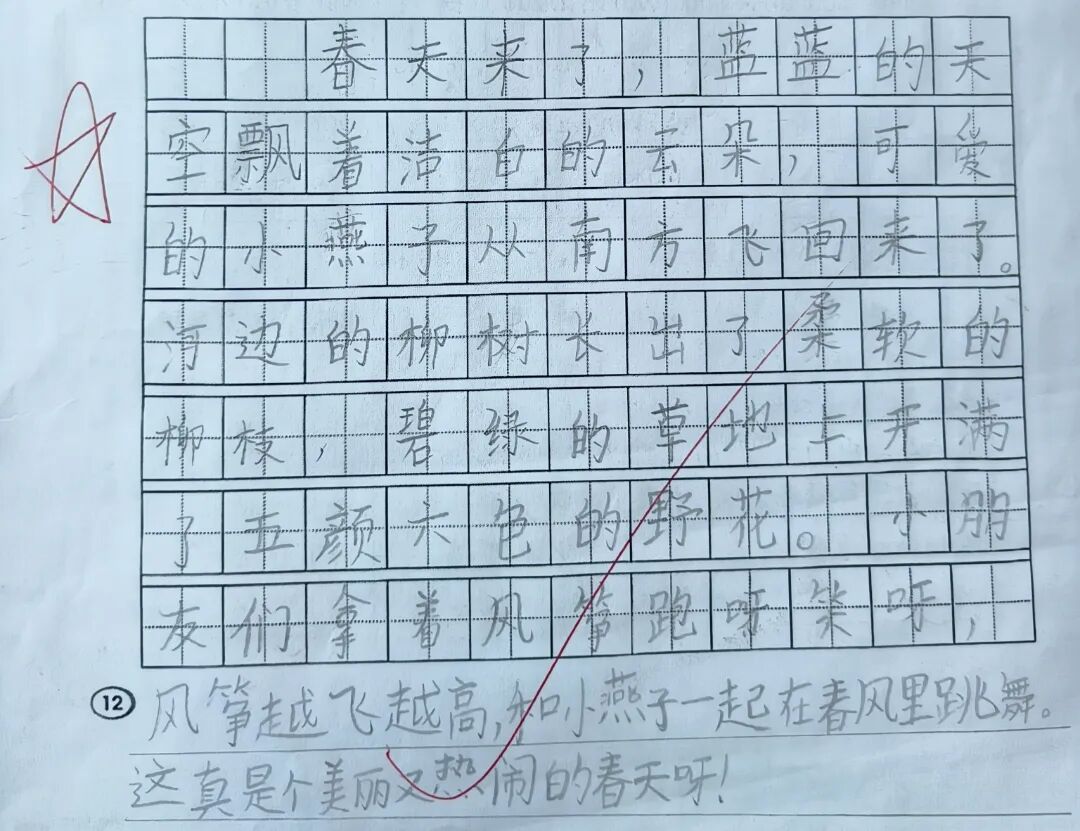 春天来了，蓝蓝的天
空飘着洁白的云朵，可爱
的小燕子从南方飞回来了。
河边的柳树长出了柔软的
柳枝，碧绿的草地上开满
了五颜六色的野花。小朋
友们拿着风筝跑呀笑呀，
12 风筝越飞越高，和小燕子一起在春风里跳舞。
这真是个美丽又热闹的春天呀！